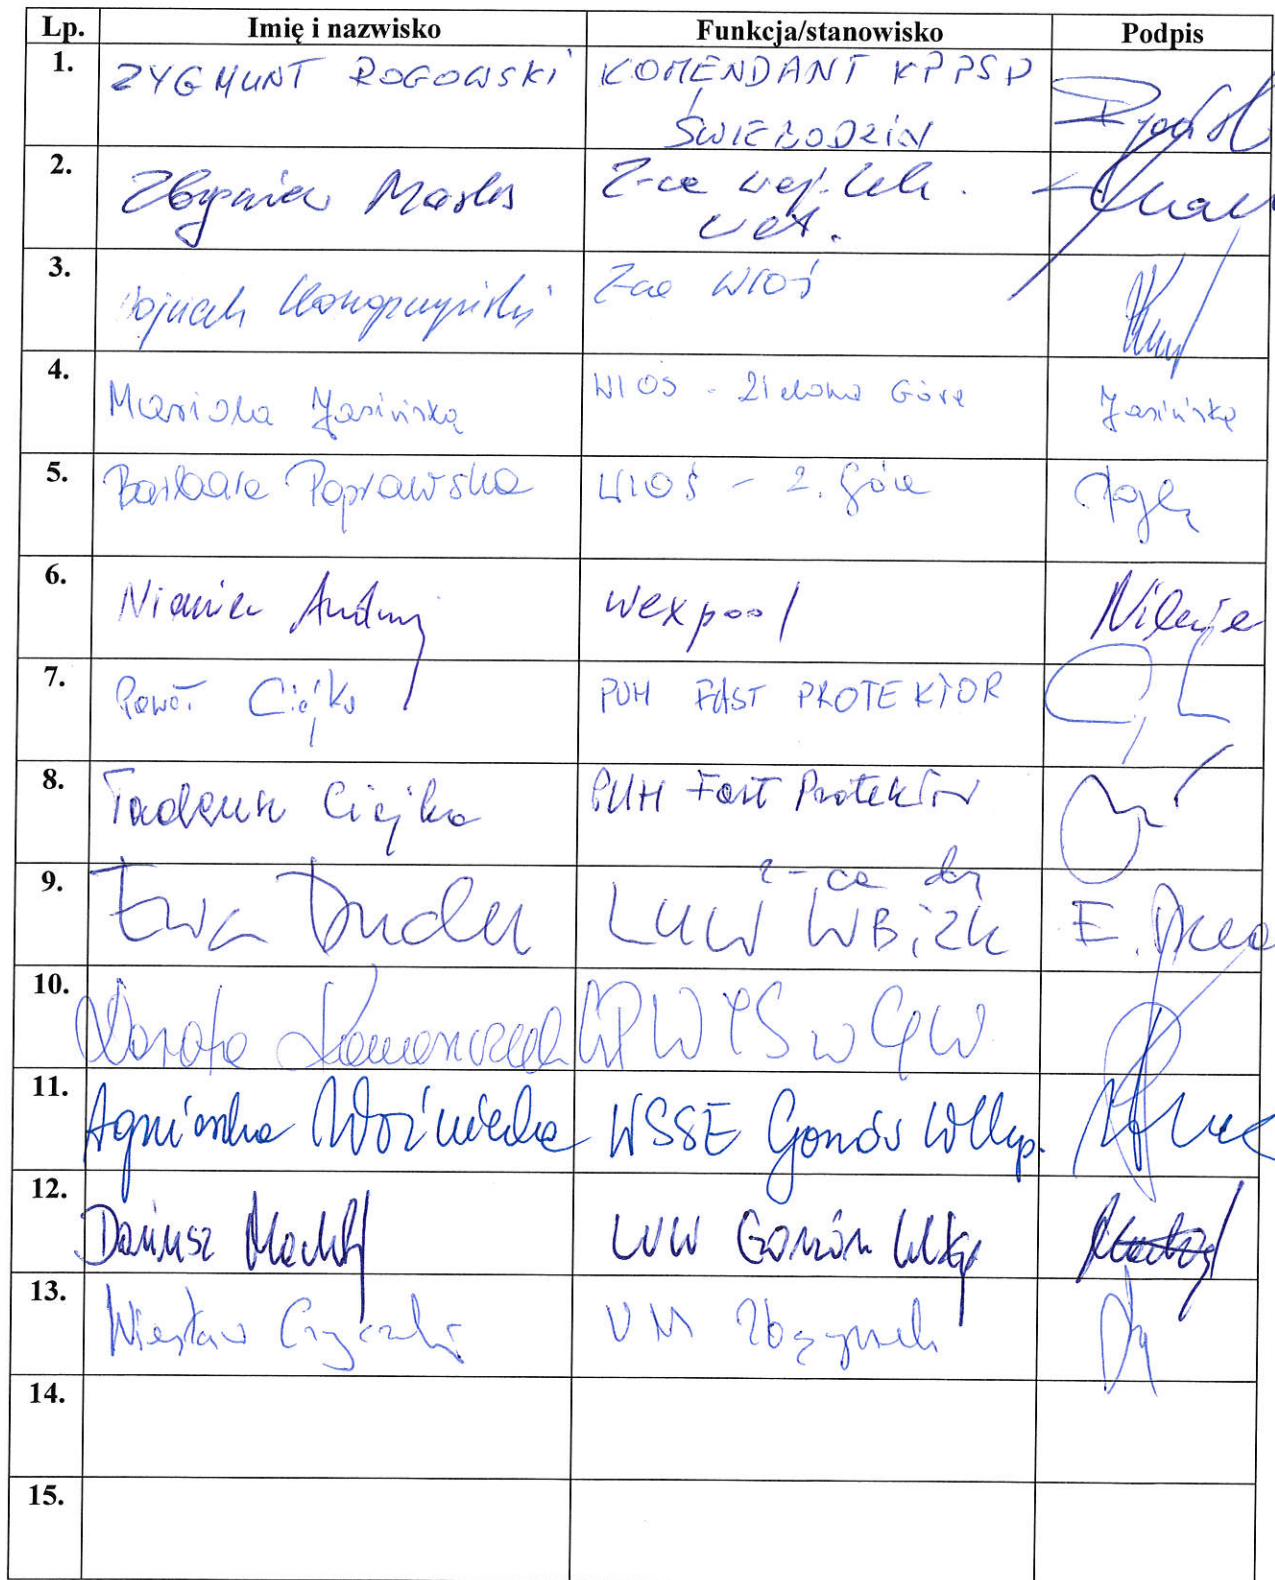 Lp. Imię i nazwisko Funkcja/stanowisko Podpis
1. ZYGMUNT ROGOWSKI KOMENDANT KPPSP
ŚWIEBODZIN
2. Zbigniew Z-ca woj. lek.
wet.
3. Z-ca WIOŚ
4. Mariola Jasińska WIOS - Zielona Góra Jasińska
5. Barbara Poprawska WIOŚ - Z. Góra
6. Niemiec Andrzej wexpool
7. Paweł Ciejka PUH FAST PROTEKTOR
8. Tadeusz Ciejka PUH Fast Protektor
9. Ewa Duda z-ca dyr
LUW WBiZK E. Duda
10. Dorota LPWIS w GW
11. Agnieszka Woźniecka WSSE Gorzów Wlkp.
12. Dariusz LUW Gorzów Wlkp
13. Wiesław UM Zbąszynek
14.
15.